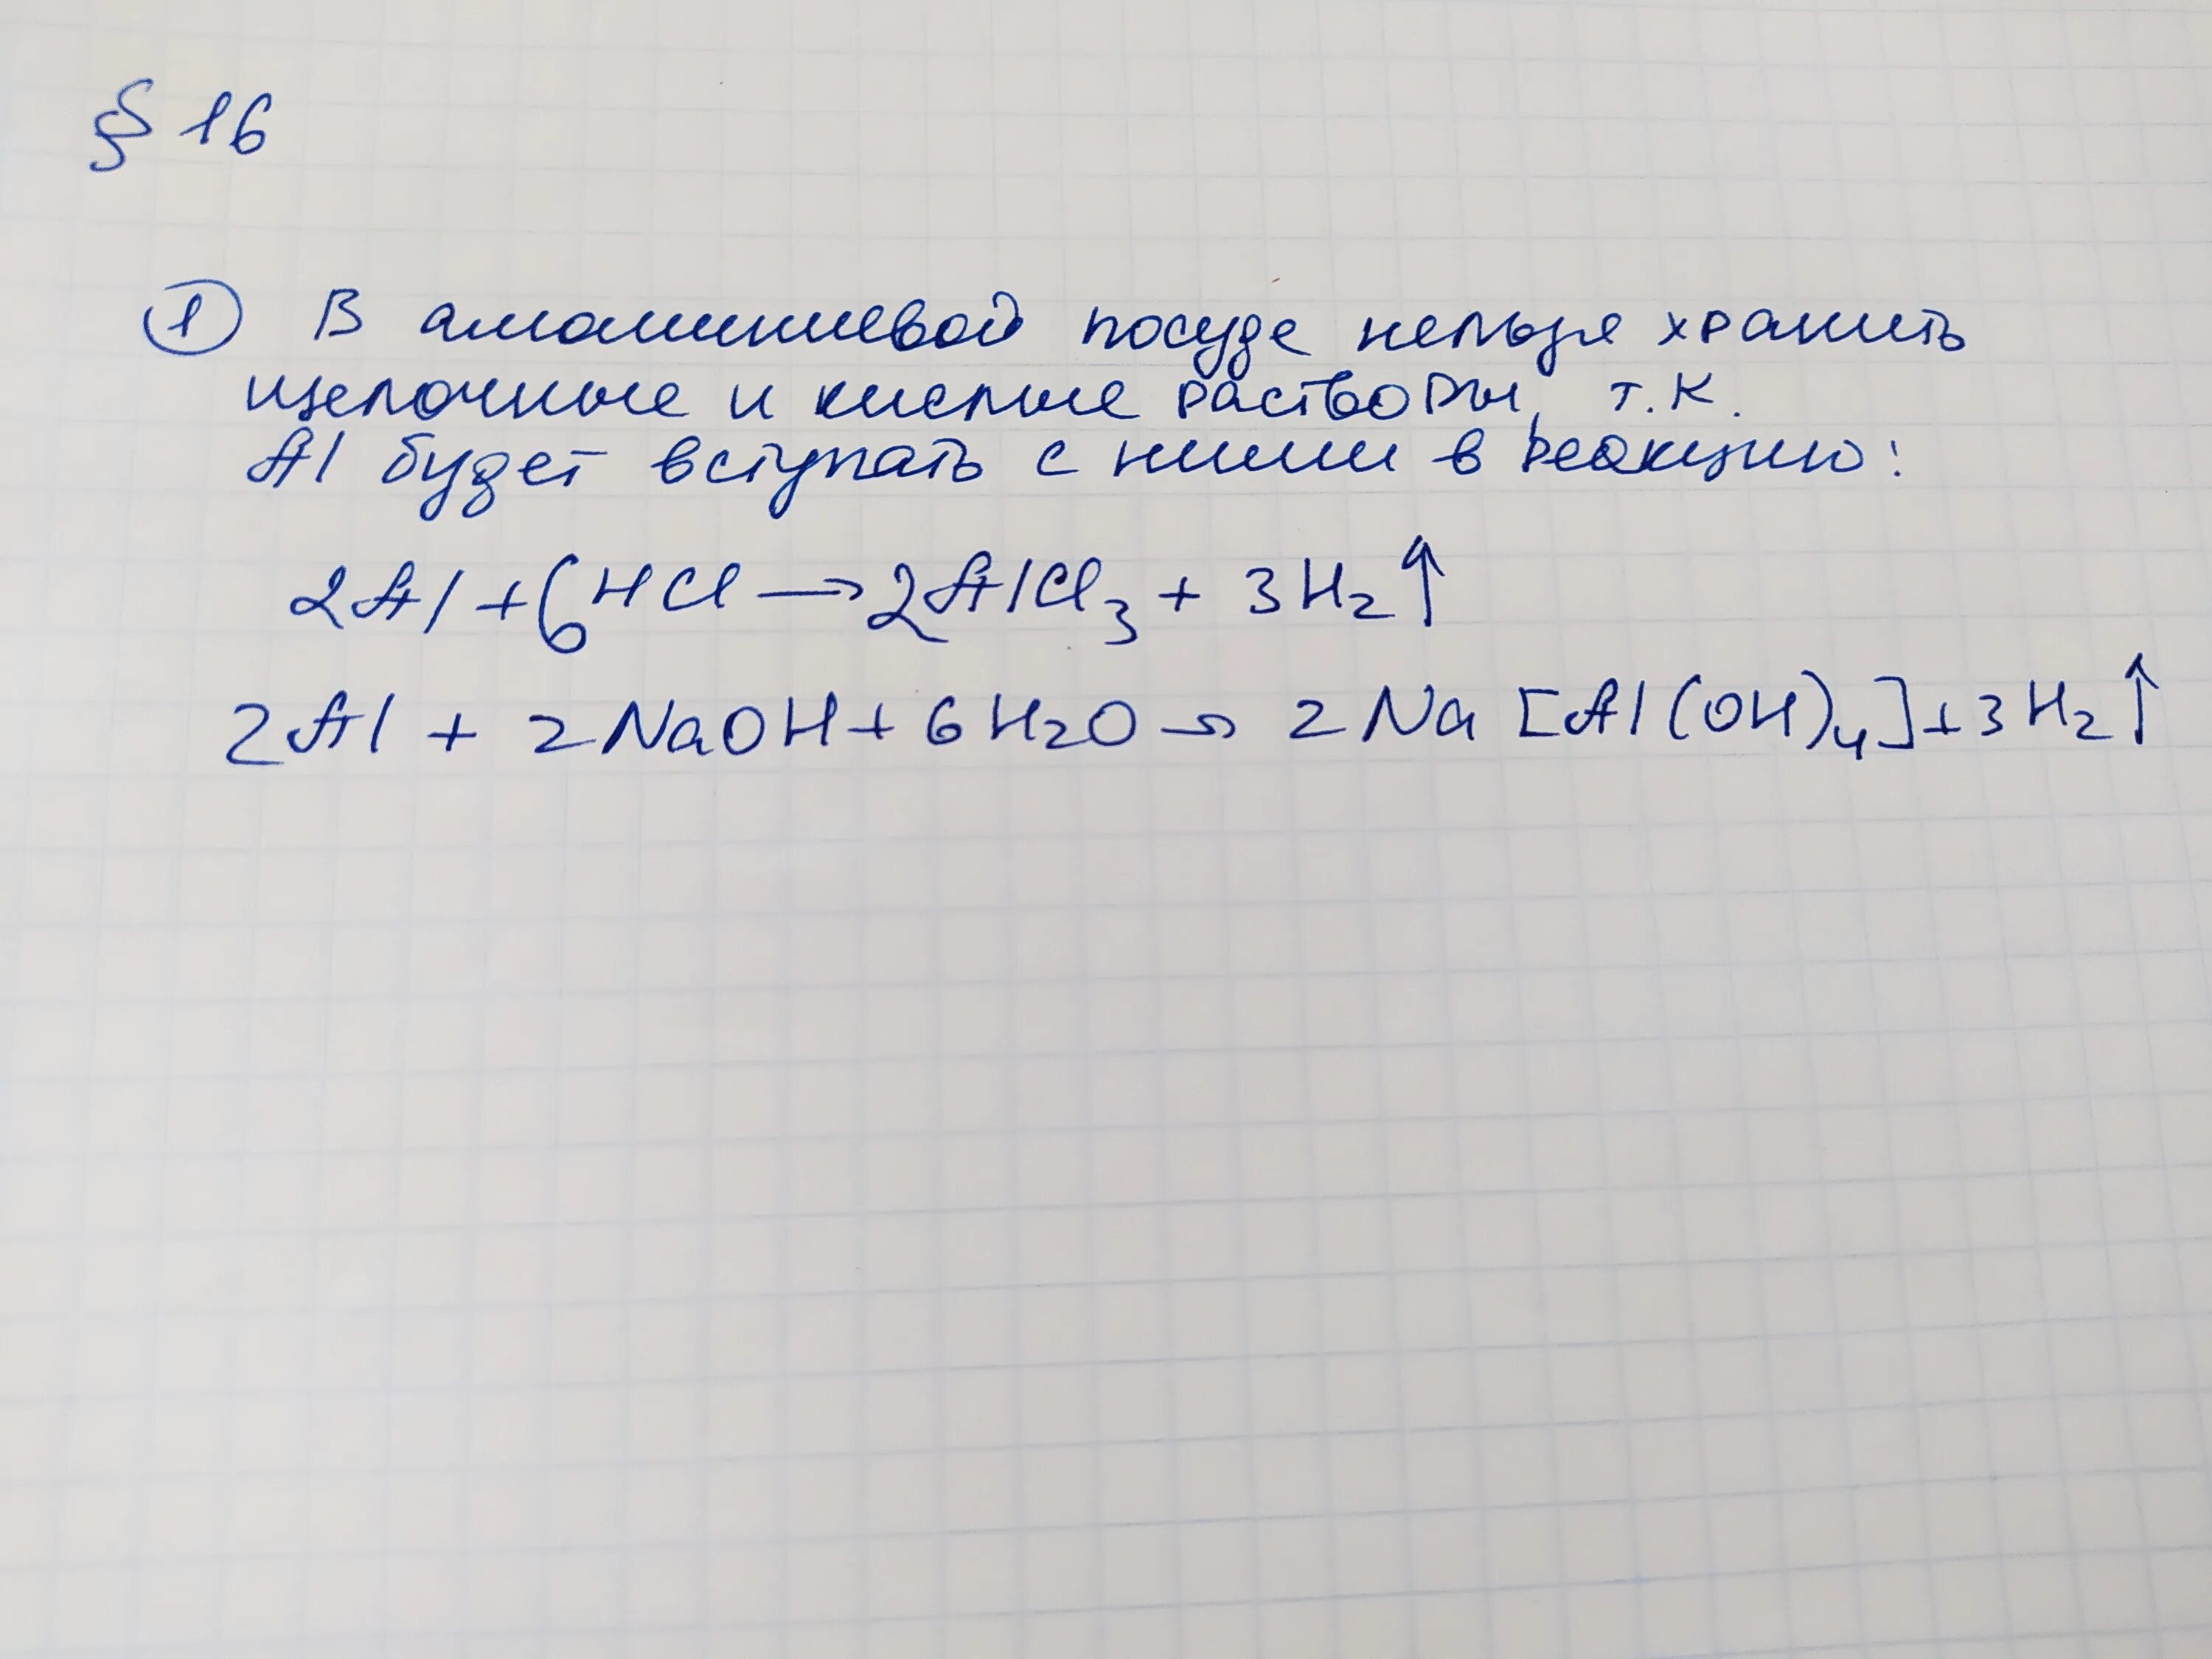 § 16
1 В алюминиевой посуде нельзя хранить
щелочные и кислые растворы, т.к.
Al будет вступать с ними в реакцию:
2Al + 6HCl → 2AlCl₃ + 3H₂↑
2Al + 2NaOH + 6H₂O → 2Na[Al(OH)₄] + 3H₂↑